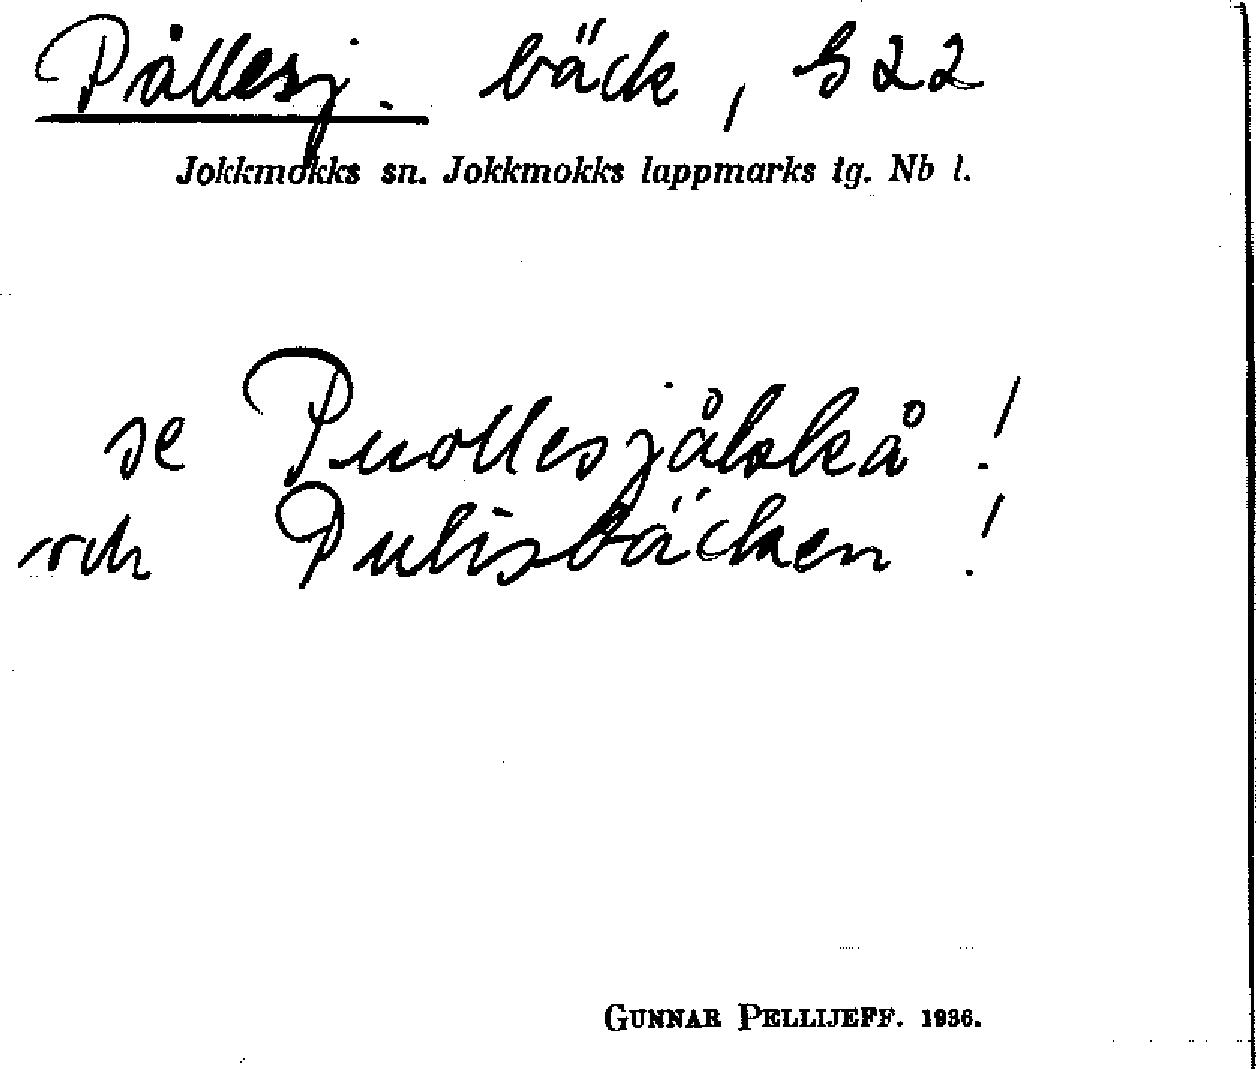 Pållesj. bäck, G22
Jokkmokks sn. Jokkmokks lappmarks tg. Nb l.
se Puollesjålskå!
och Pulisbäcken!
GUNNAR PELLIJEFF. 1936.